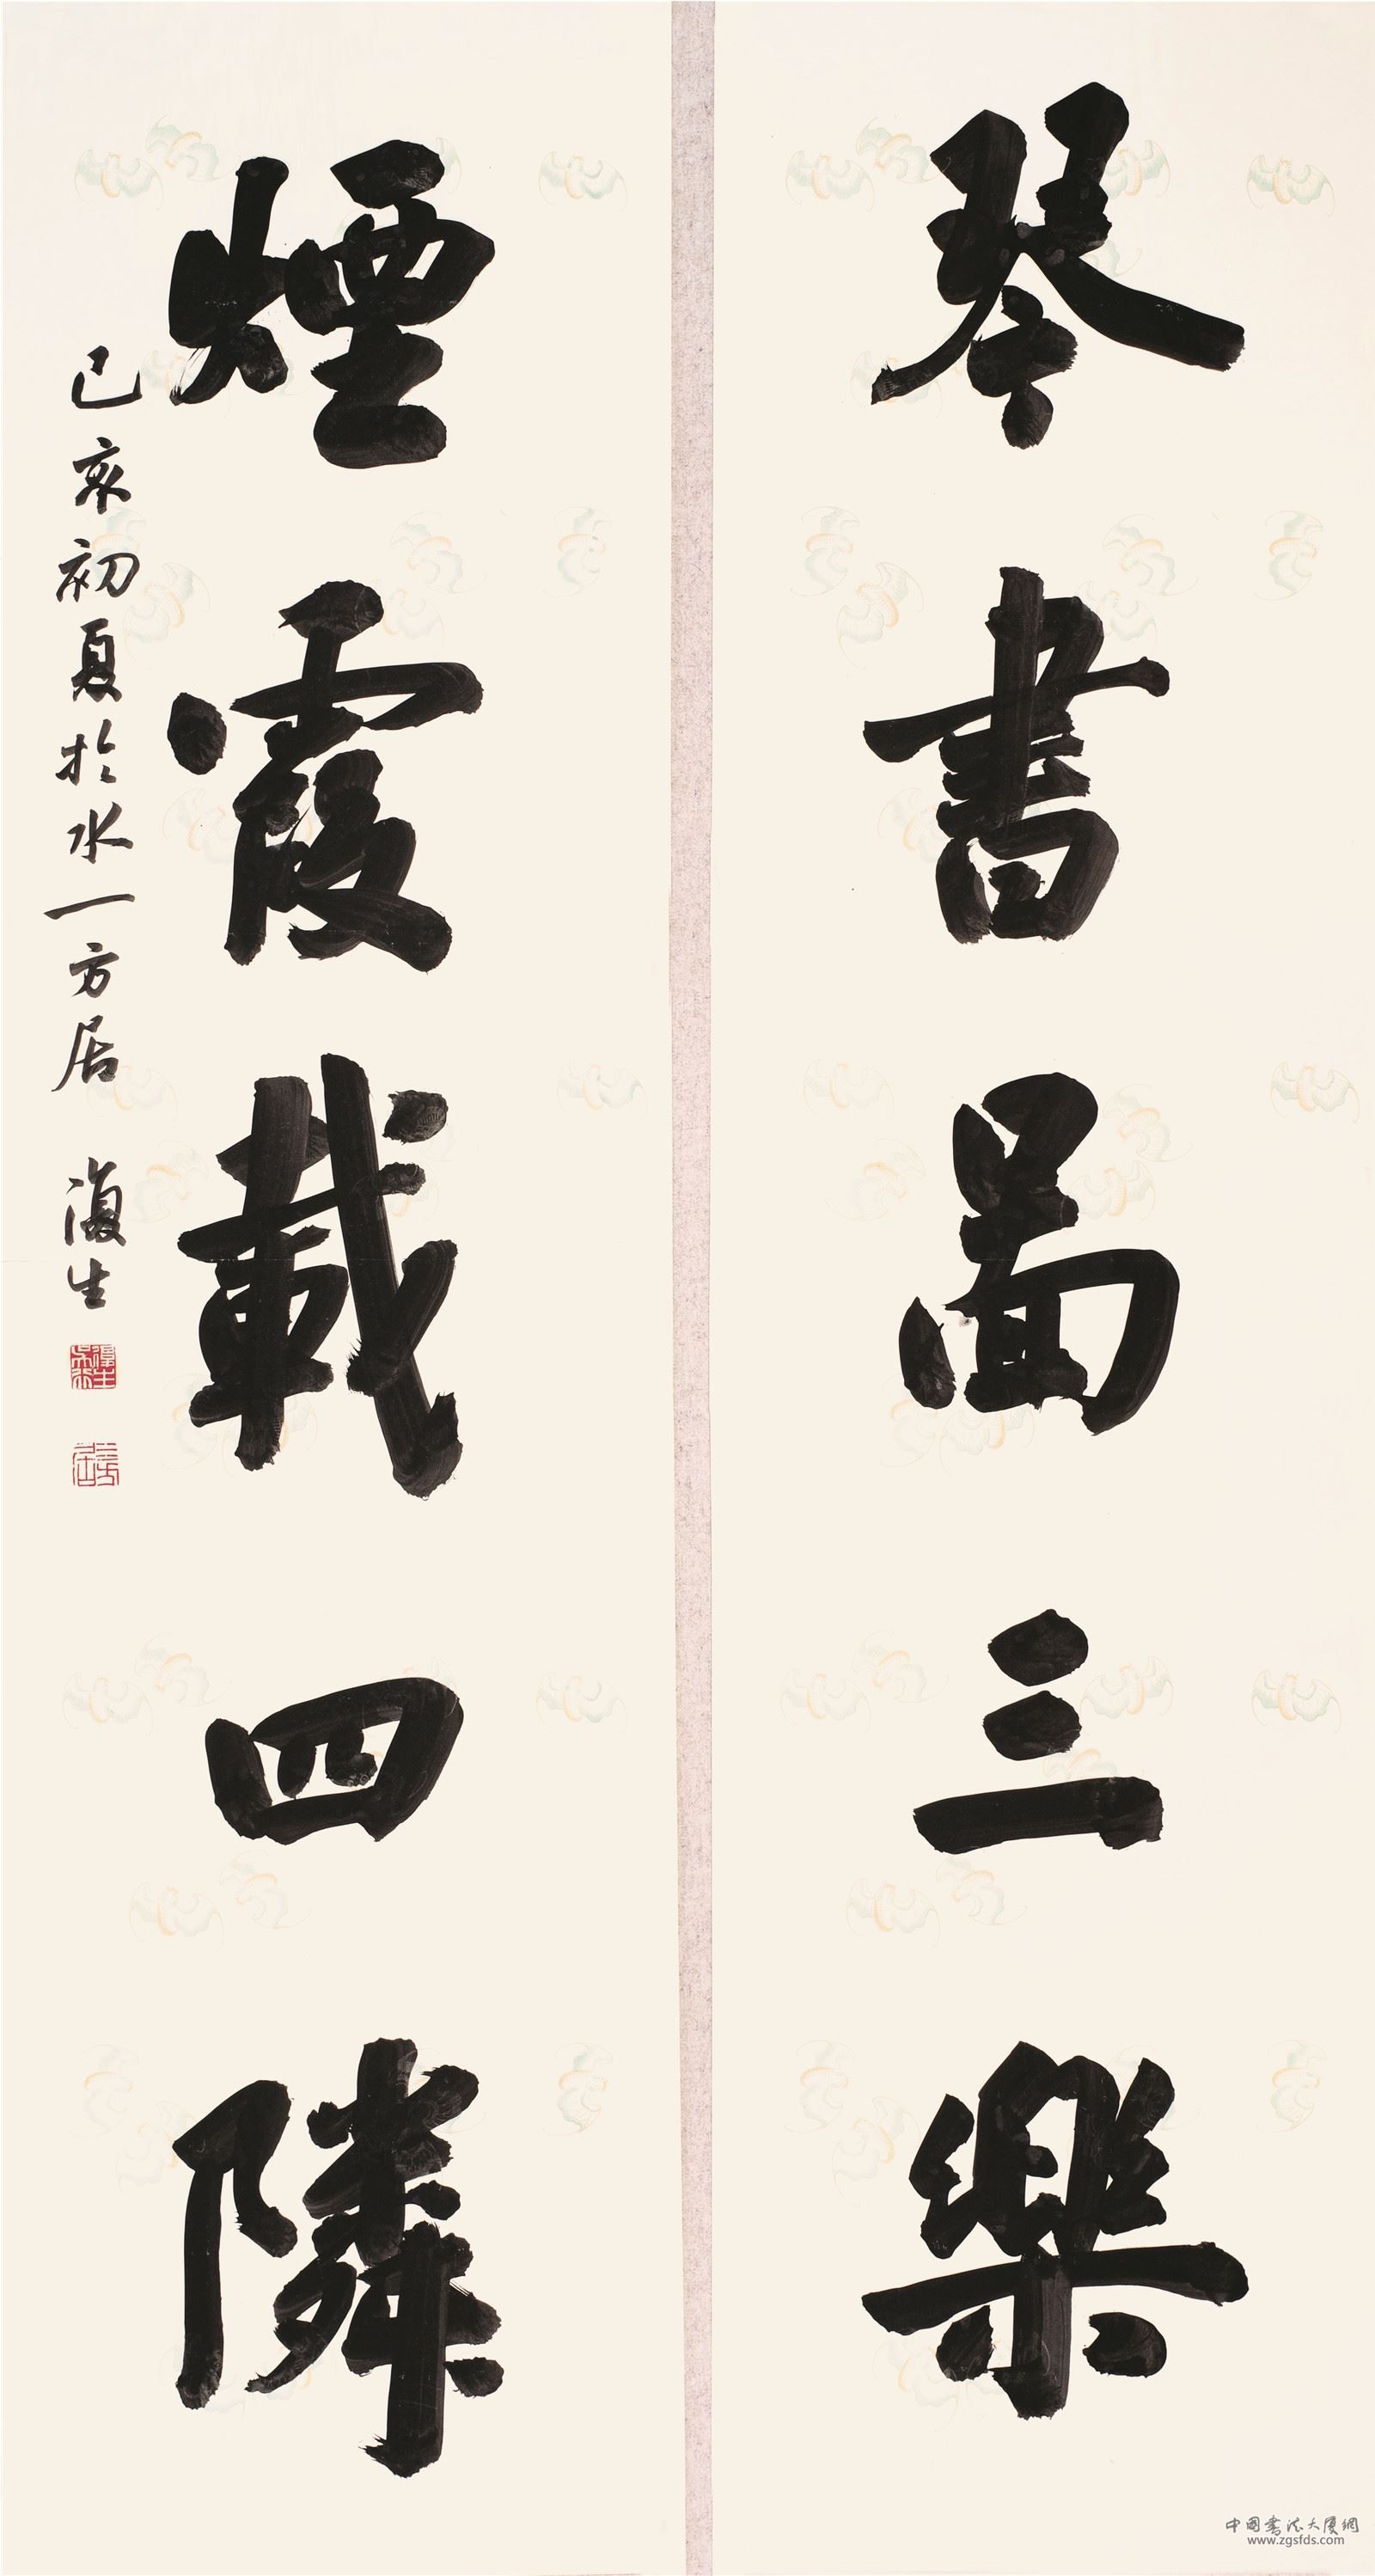 琴書啚三樂
煙霞載四隣
己亥初夏於水一方居 復生
中国書法大厦網
www.zgsfds.com